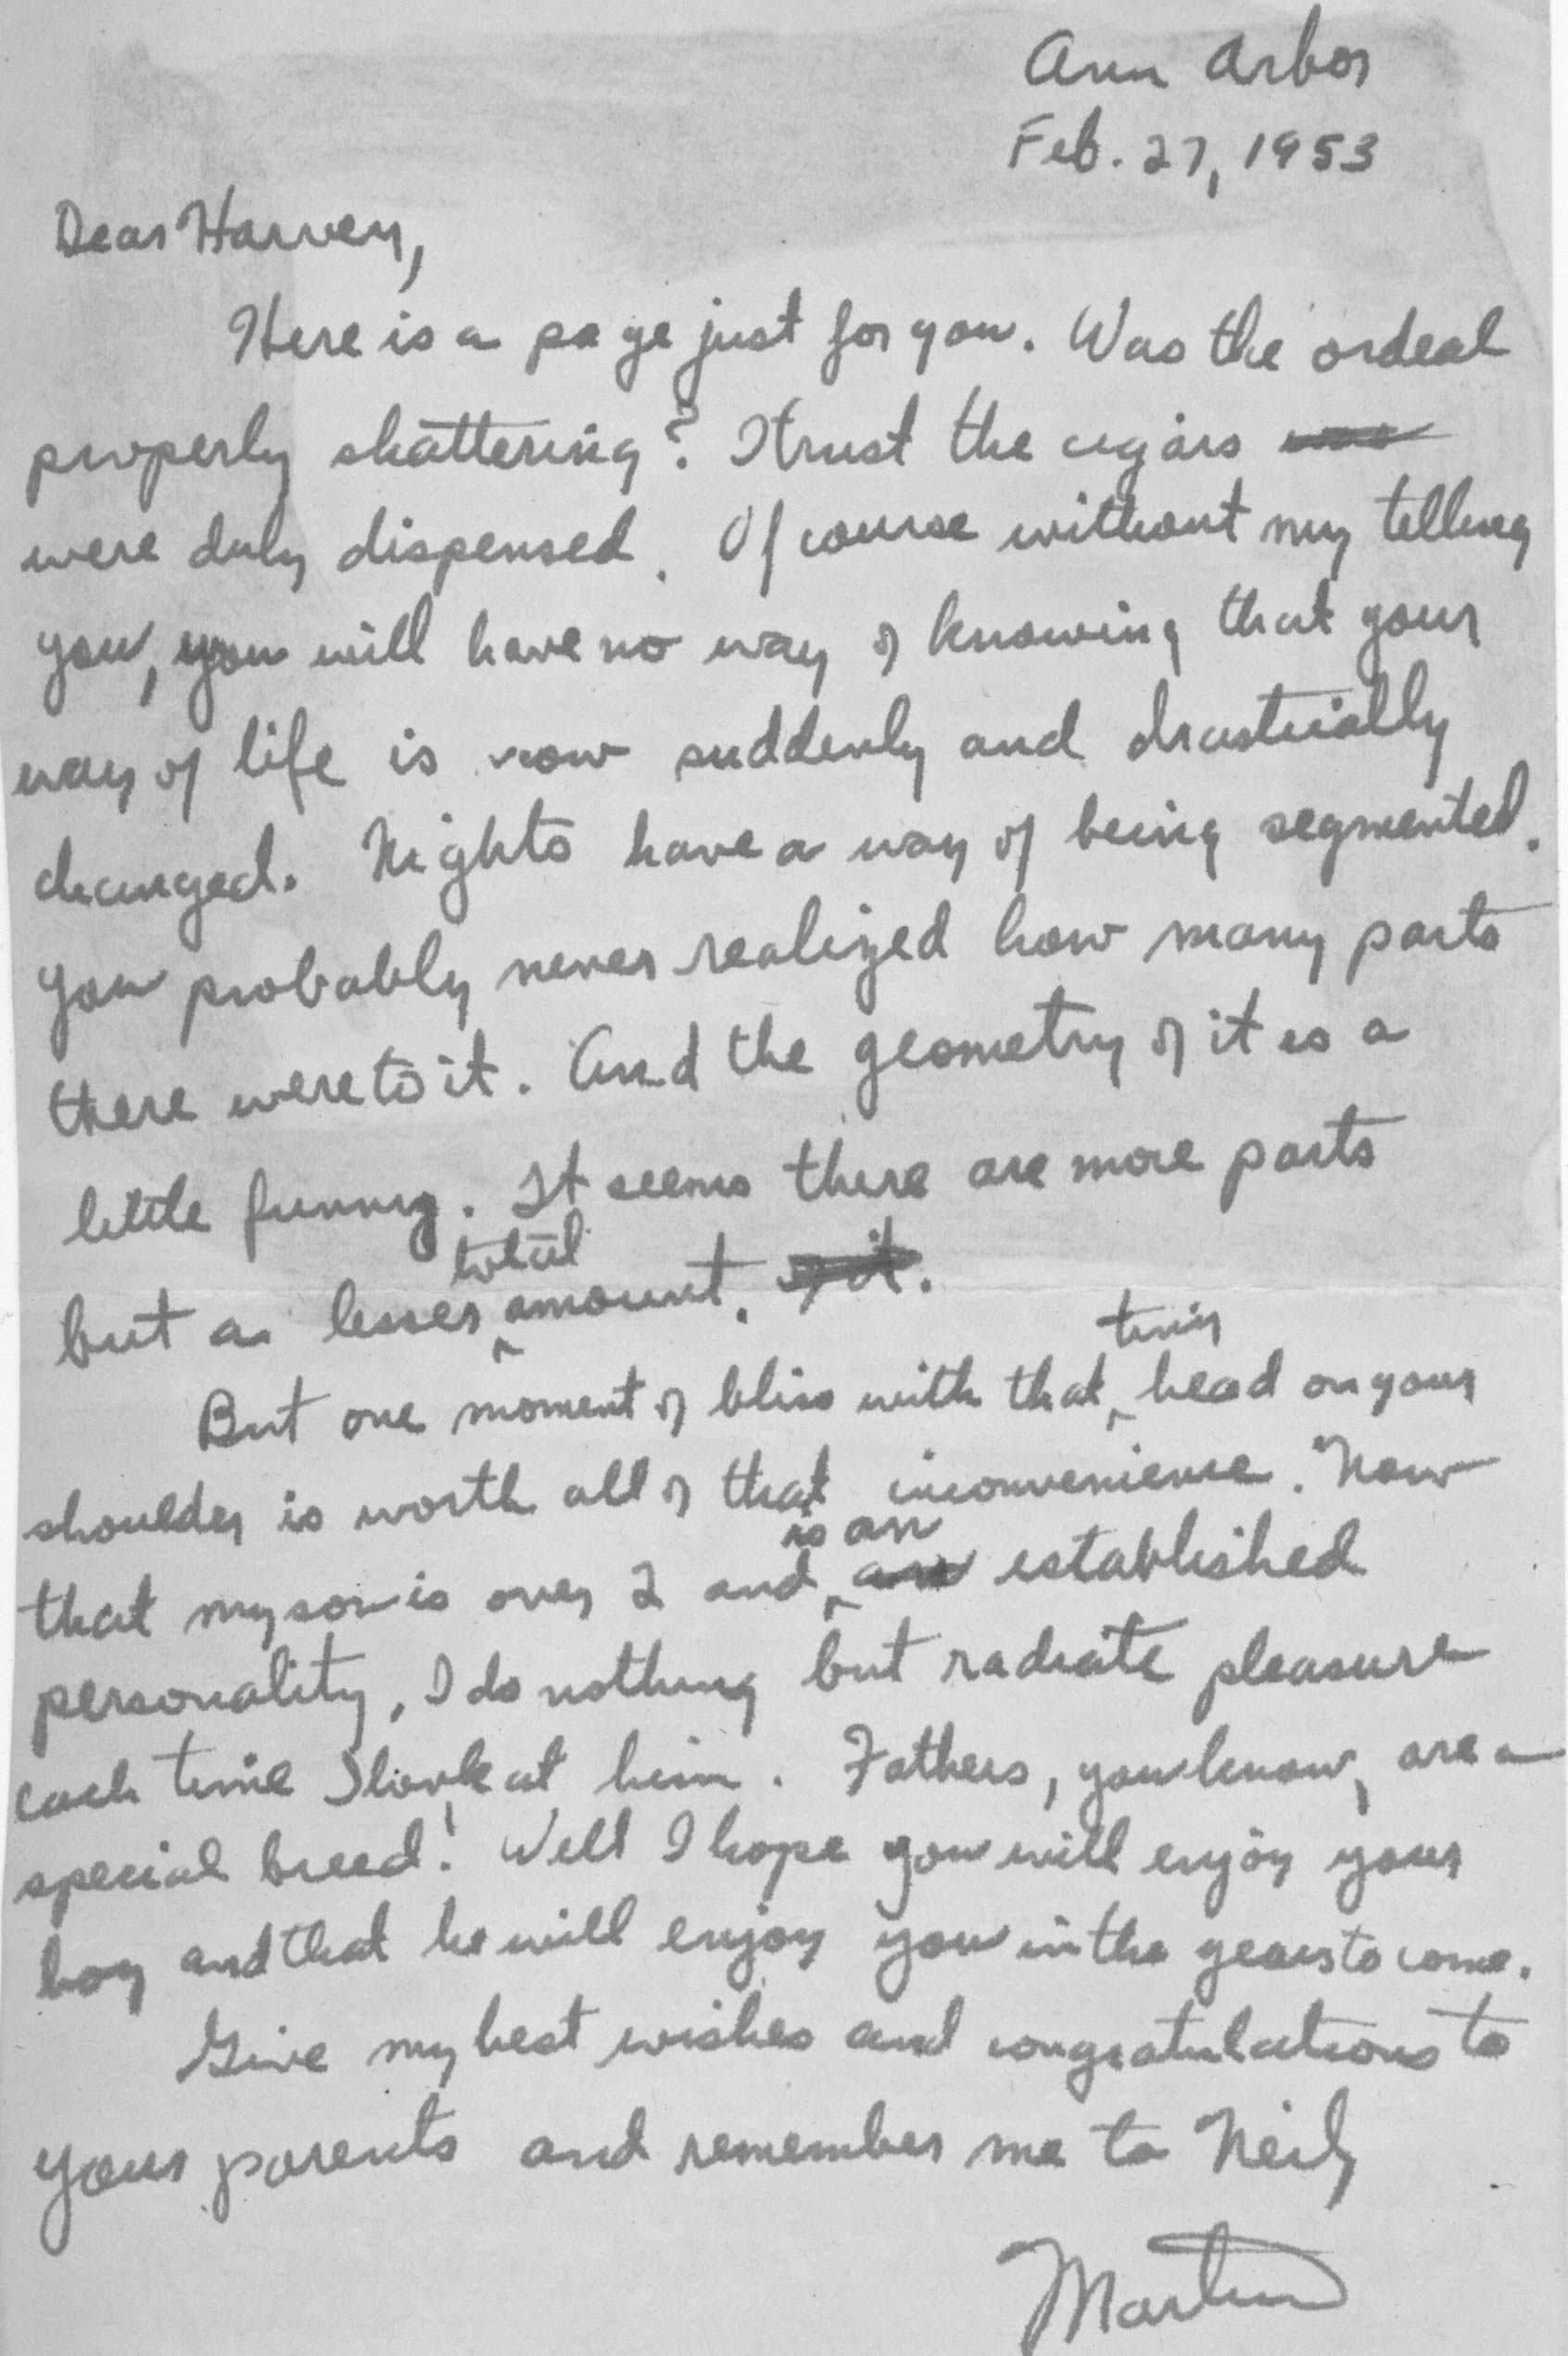 Ann Arbor
Feb. 27, 1953
Dear Harvey,
Here is a page just for you. Was the ordeal
properly shattering? I trust the cigars was
were duly dispensed. Of course without my telling
you, you will have no way of knowing that your
way of life is now suddenly and drastically
changed. Nights have a way of being segmented.
You probably never realized how many parts
there were to it. And the geometry of it is a
little funny. It seems there are more parts
but a lesser total amount. of it.
But one moment of bliss with that tiny head on your
shoulder is worth all of that inconvenience. Now
that my son is over 2 and is an established
personality, I do nothing but radiate pleasure
each time I look at him. Fathers, you know, are a
special breed! Well I hope you will enjoy your
boy and that he will enjoy you in the years to come.
Give my best wishes and congratulations to
your parents and remember me to
Martin